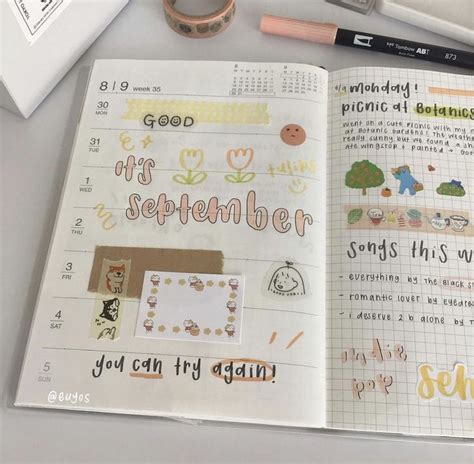 Tombow ABT 873
8|9 week 35
8
9
30
MON
GOOD
31
TUE
tulips
it's
1
WED
september
2
THU
3
FRI
4
SAT
5
SUN
you can try again!
@Buyos
monday!
picnic at Botanics
went on a cute picnic with my
at Botanic Gardens! the weathe
really sunny but we found a sha
ate wingstop + painted
songs this w
- everything by the Black S
- romantic lover by eyedre
- i deserve 2 b alone by T
indie
pop